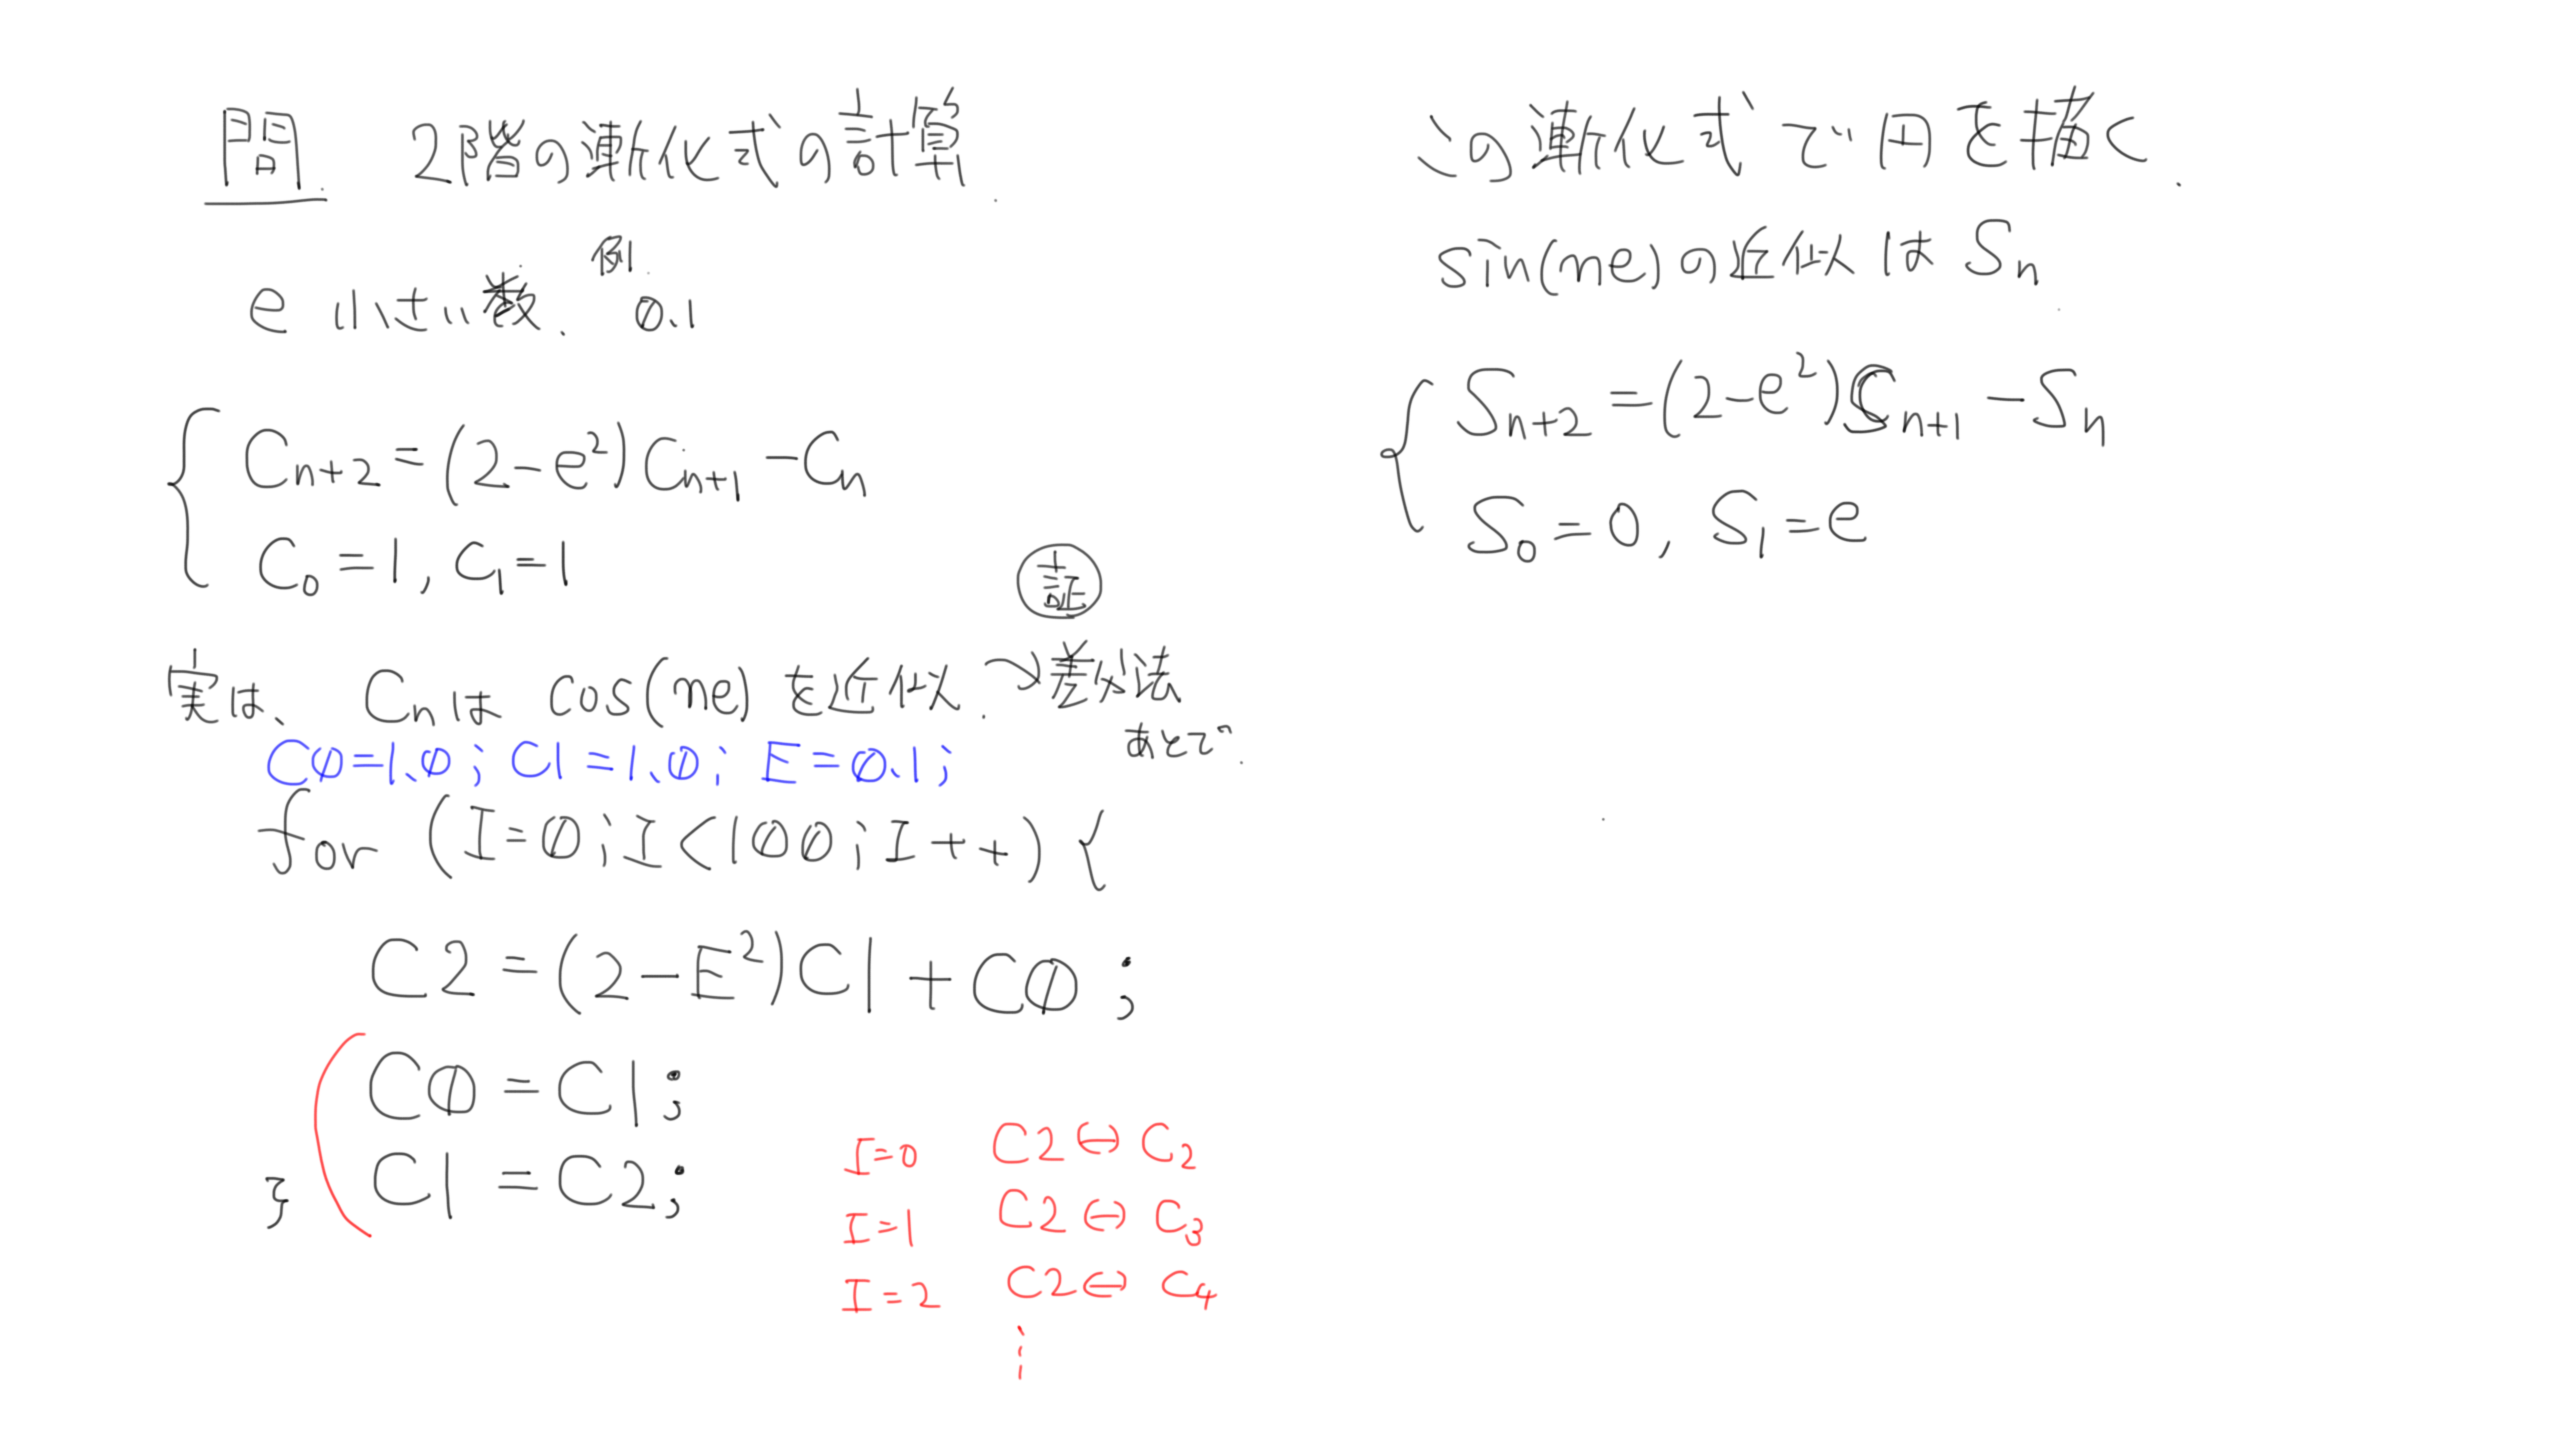 問. 2階の漸化式の計算.
e 小さい数. 例. 0.1
C_{n+2} = (2-e^2) C_{n+1} - C_n
C_0 = 1, C_1 = 1
証
実は、 C_n は cos(ne) を近似. → 差分法
あとで.
C0=1.0; C1=1.0; E=0.1;
for (I=0; I<100; I++) {
C2 = (2-E^2)C1 + C0;
C0 = C1;
C1 = C2;
}
I=0 C2 ↔ C_2
I=1 C2 ↔ C_3
I=2 C2 ↔ C_4
⋮
この漸化式で円を描く.
sin(ne)の近似は S_n
S_{n+2} = (2-e^2) S_{n+1} - S_n
S_0 = 0, S_1 = e